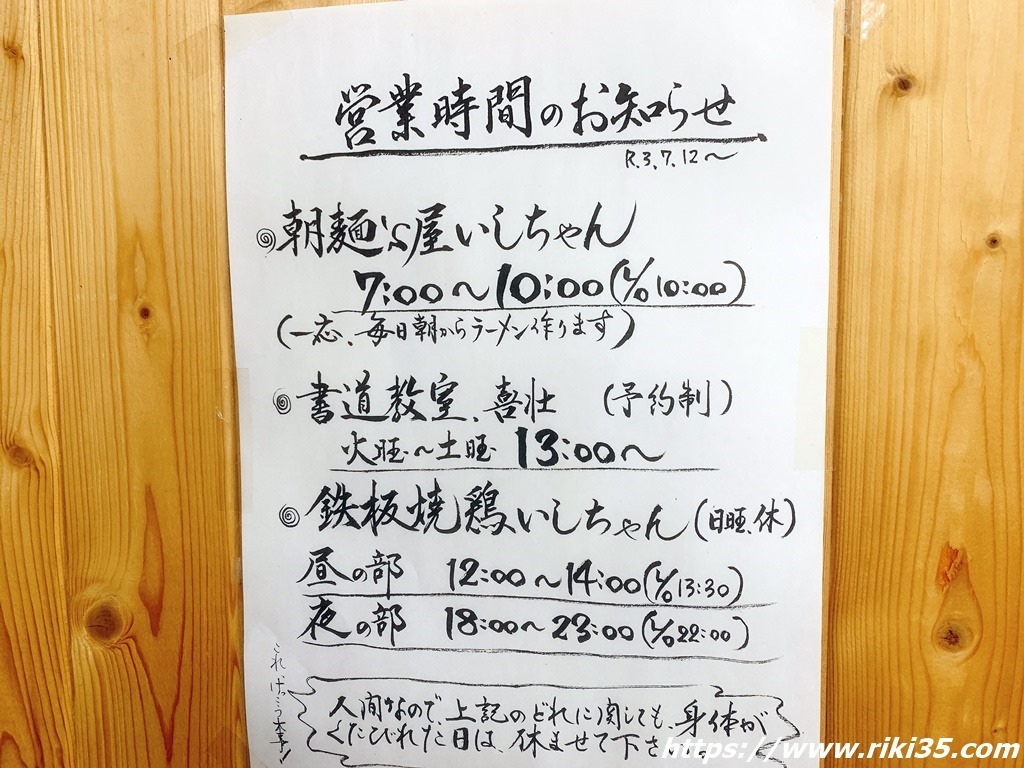 営業時間のお知らせ
R.3.7.12〜
朝麺's屋いしちゃん
7:00〜10:00(L/O 10:00)
(一応、毎日朝からラーメン作ります)
書道教室、喜壮 (予約制)
火旺〜土旺 13:00〜
鉄板焼鶏いしちゃん(日旺、休)
昼の部 12:00〜14:00(L/O 13:30)
夜の部 18:00〜23:00(L/O 22:00)
これ、けっこう本音!
人間なので、上記のどれに関しても、身体が
くたびれた日は、休ませて下さ
https://www.riki35.com